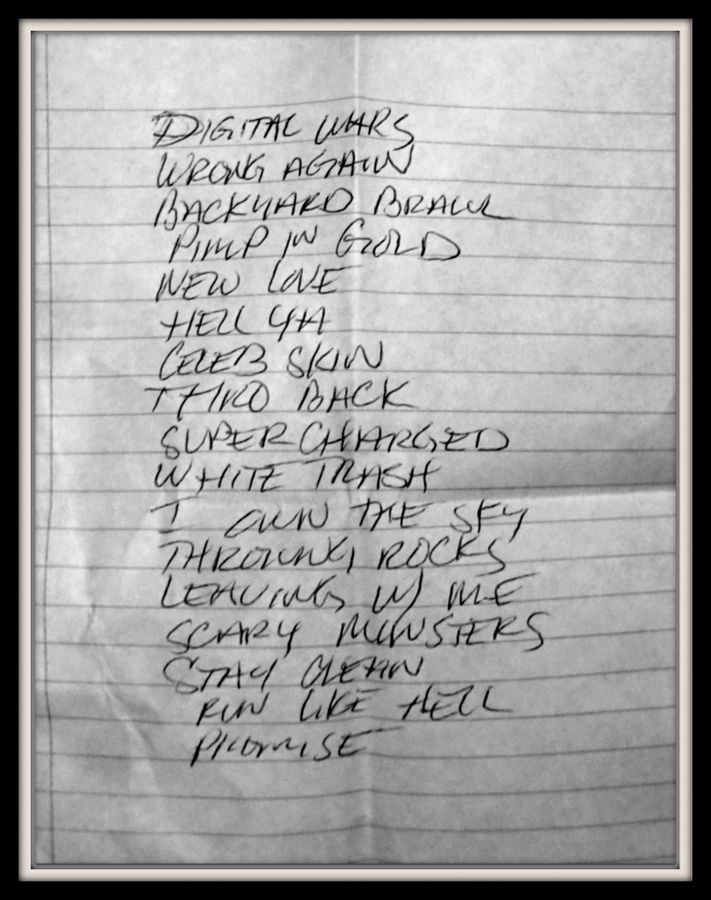 DIGITAL WARS
WRONG AGAIN
BACKYARD BRAWL
PIMP IN GOLD
NEW LOVE
HELL YA
CELEB SKIN
THIRD BACK
SUPER CHARGED
WHITE TRASH
I OWN THE SKY
THROWING ROCKS
LEAVING W/ ME
SCARY MONSTERS
STAY CLEAN
RUN LIKE HELL
PROMISE